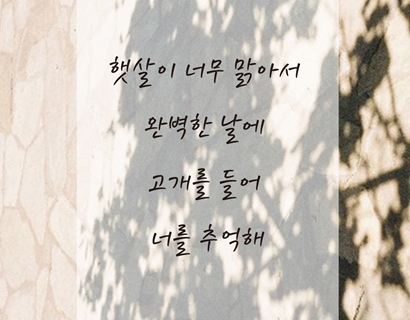 햇살이 너무 맑아서
완벽한 날에
고개를 들어
너를 추억해